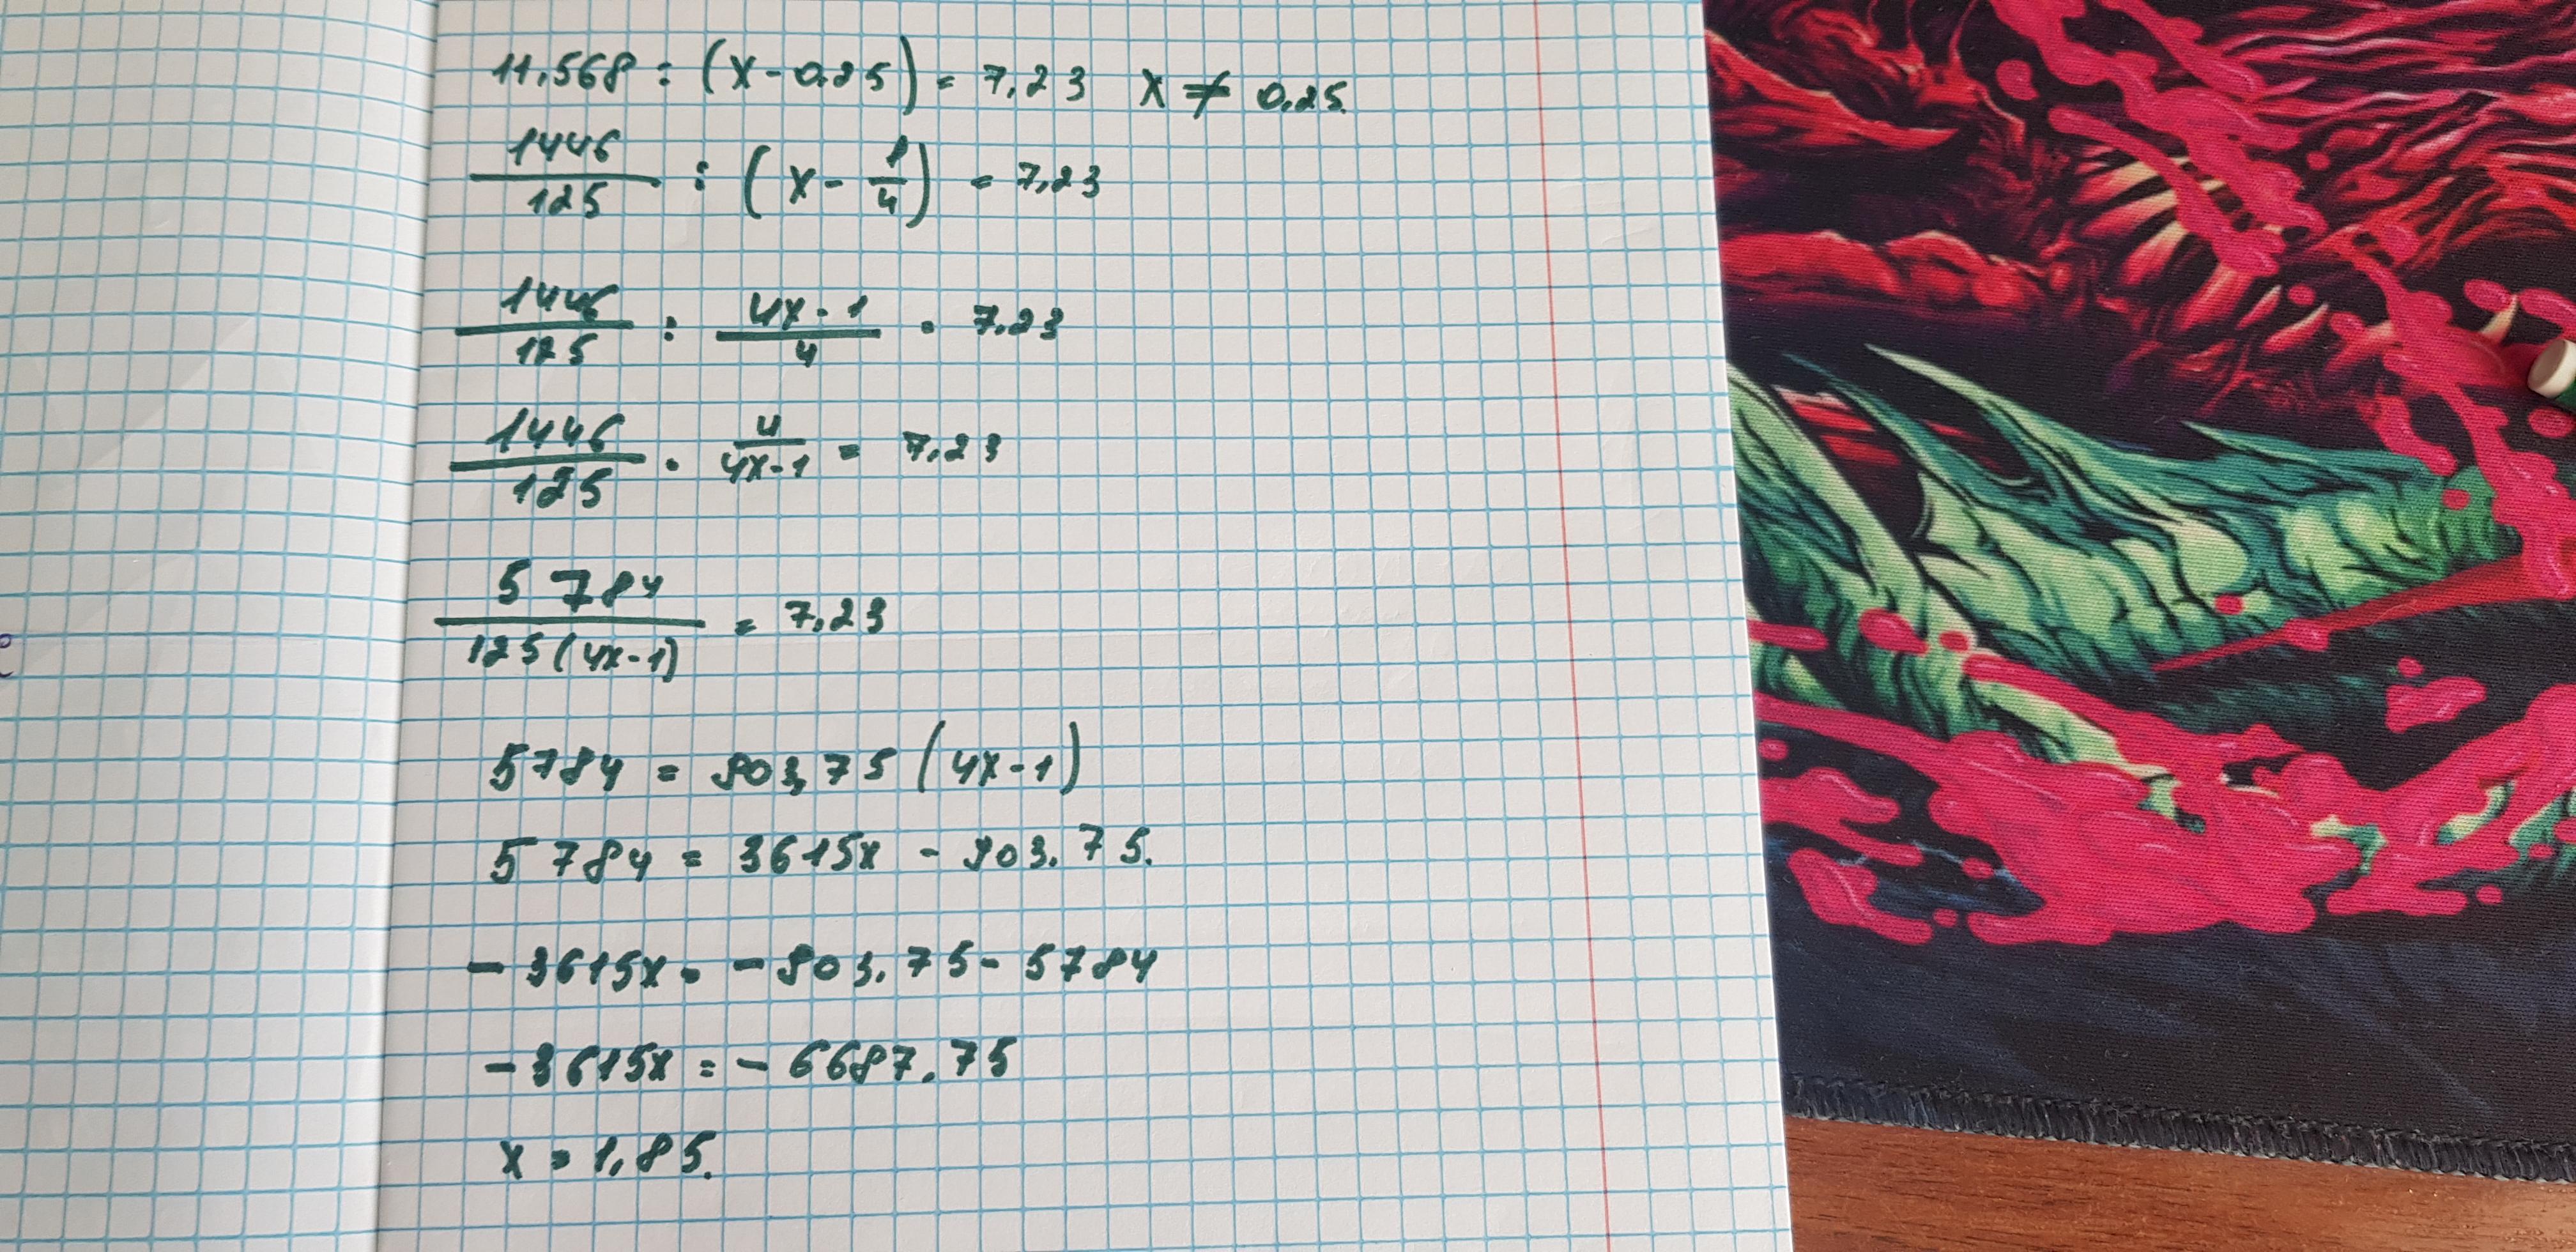 11,568 : (x - 0,25) = 7,23 x ≠ 0,25.
1446/125 : (x - 1/4) = 7,23
1446/125 : (4x - 1)/4 = 7,23
1446/125 · 4/(4x - 1) = 7,23
5784/(125(4x - 1)) = 7,23
5784 = 803,75 (4x - 1)
5784 = 3615x - 803,75.
- 3615x = - 803,75 - 5784
- 3615x = - 6687,75
x = 1,85.